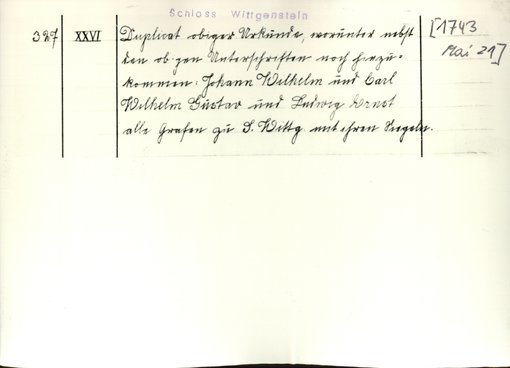 Schloss Wittgenstein
327 XXVI Duplicat obiger Urkunde, worunter nebst [1743
den obigen Unterschriften noch hinzu- Mai 21]
kommen: Johann Wilhelm und Carl
Wilhelm Gustav und Ludwig Ernst
alle Grafen zu S. Wittg. mit ihren Siegeln.